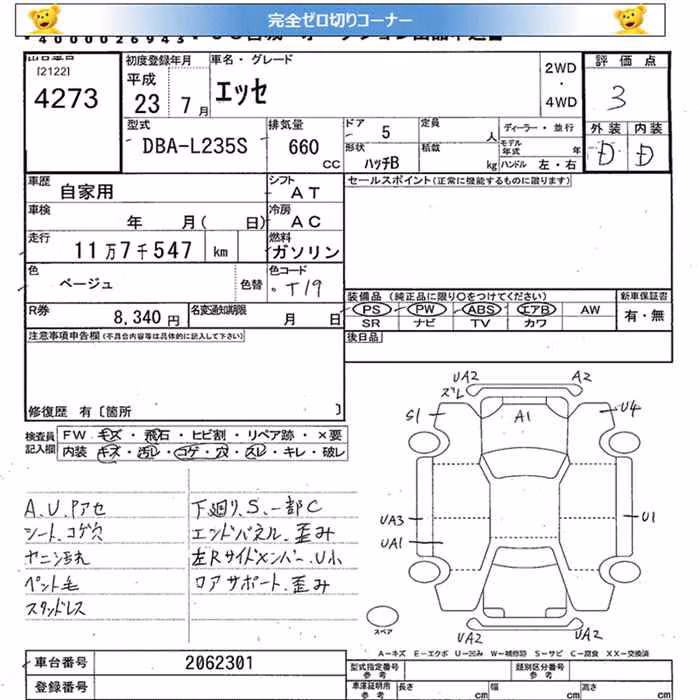 完全ゼロ切りコーナー
* 4 0 0 0 0 2 6 9 4 3 *
[2122]
4273
初度登録年月
平成
23 7 月
車名・グレード
エッセ
2WD
・
4WD
評価点
3
外装 内装
D D
型式
DBA-L235S
排気量
660
CC
ドア
5
定員
人
形状
ハッチB
積載
kg
ディーラー・並行
モデル年式
年
ハンドル 左・右
車歴
自家用
シフト
AT
車検
年 月( 日)
冷房
AC
走行
11万7千547 km
燃料
ガソリン
色
ベージュ
色替
色コード
T19
R券
8,340 円
名変通知期限
月 日
セールスポイント(正常に機能するものに限ります)
装備品 (純正品に限り○をつけてください)
新車保証書
PS PW ABS エアB AW
SR ナビ TV カワ
有・無
注意事項申告欄(不具合内容等は具体的に記入して下さい)
後日品
修復歴 有〔箇所 〕
検査員
記入欄
FW キズ・飛石・ヒビ割・リペア跡・×要
内装 キズ・汚レ・コゲ・穴・スレ・キレ・破レ
A.U.Pアセ
シート.コゲ穴
ヤニ汚れ
ペット毛
スタッドレス
下廻り.S.一部C
エンドパネル.歪み
左Rサイドメンバー.U小
ロアサポート.歪み
UA2
ズレ
A2
S1
A1
U4
UA3
UA1
U1
スペア
UA2
UA2
A-キズ E-エクボ U-凹み W-補修跡 S-サビ C-腐食 XX-交換済
車台番号
2062301
登録番号
型式指定番号
参考
類別区分番号
参考
車庫証明用
参考
長さ cm
幅 cm
高さ cm